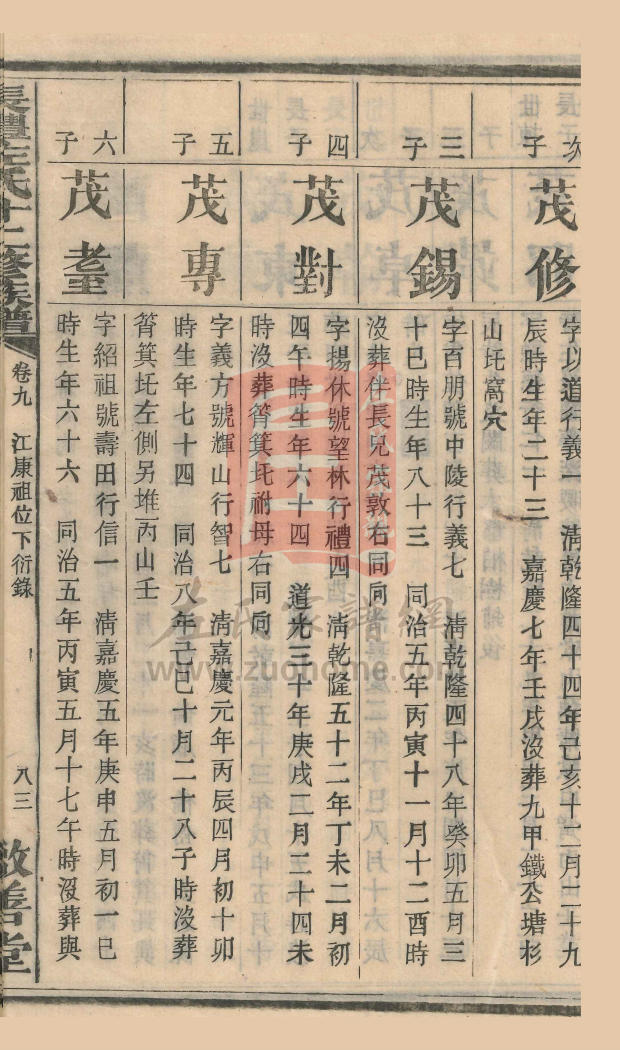 次子
茂修
字以道行義一　清乾隆四十四年己亥十一月二十九
辰時生年二十三　嘉慶七年壬戌沒葬九甲鐵公塘杉
山圫窩穴
三子
茂錫
字百朋號中陵行義七　清乾隆四十八年癸卯五月三
十巳時生年八十三　同治五年丙寅十一月十二酉時
沒葬伴長兄茂敦右同向
四子
茂對
字揚休號望林行禮四　清乾隆五十二年丁未二月初
四午時生年六十四　道光三十年庚戌二月二十四未
時沒葬筲箕圫祔母右同向
五子
茂專
字義方號輝山行智七　清嘉慶元年丙辰四月初十卯
時生年七十四　同治八年己巳十月二十八子時沒葬
筲箕圫左側另堆丙山壬
六子
茂耋
字紹祖號壽田行信一　清嘉慶五年庚申五月初一巳
時生年六十六　同治五年丙寅五月十七午時沒葬與
長澧左氏十二修族譜
卷九　江康祖位下衍錄
八三
敦善堂
左氏家譜網
www.zuohome.com